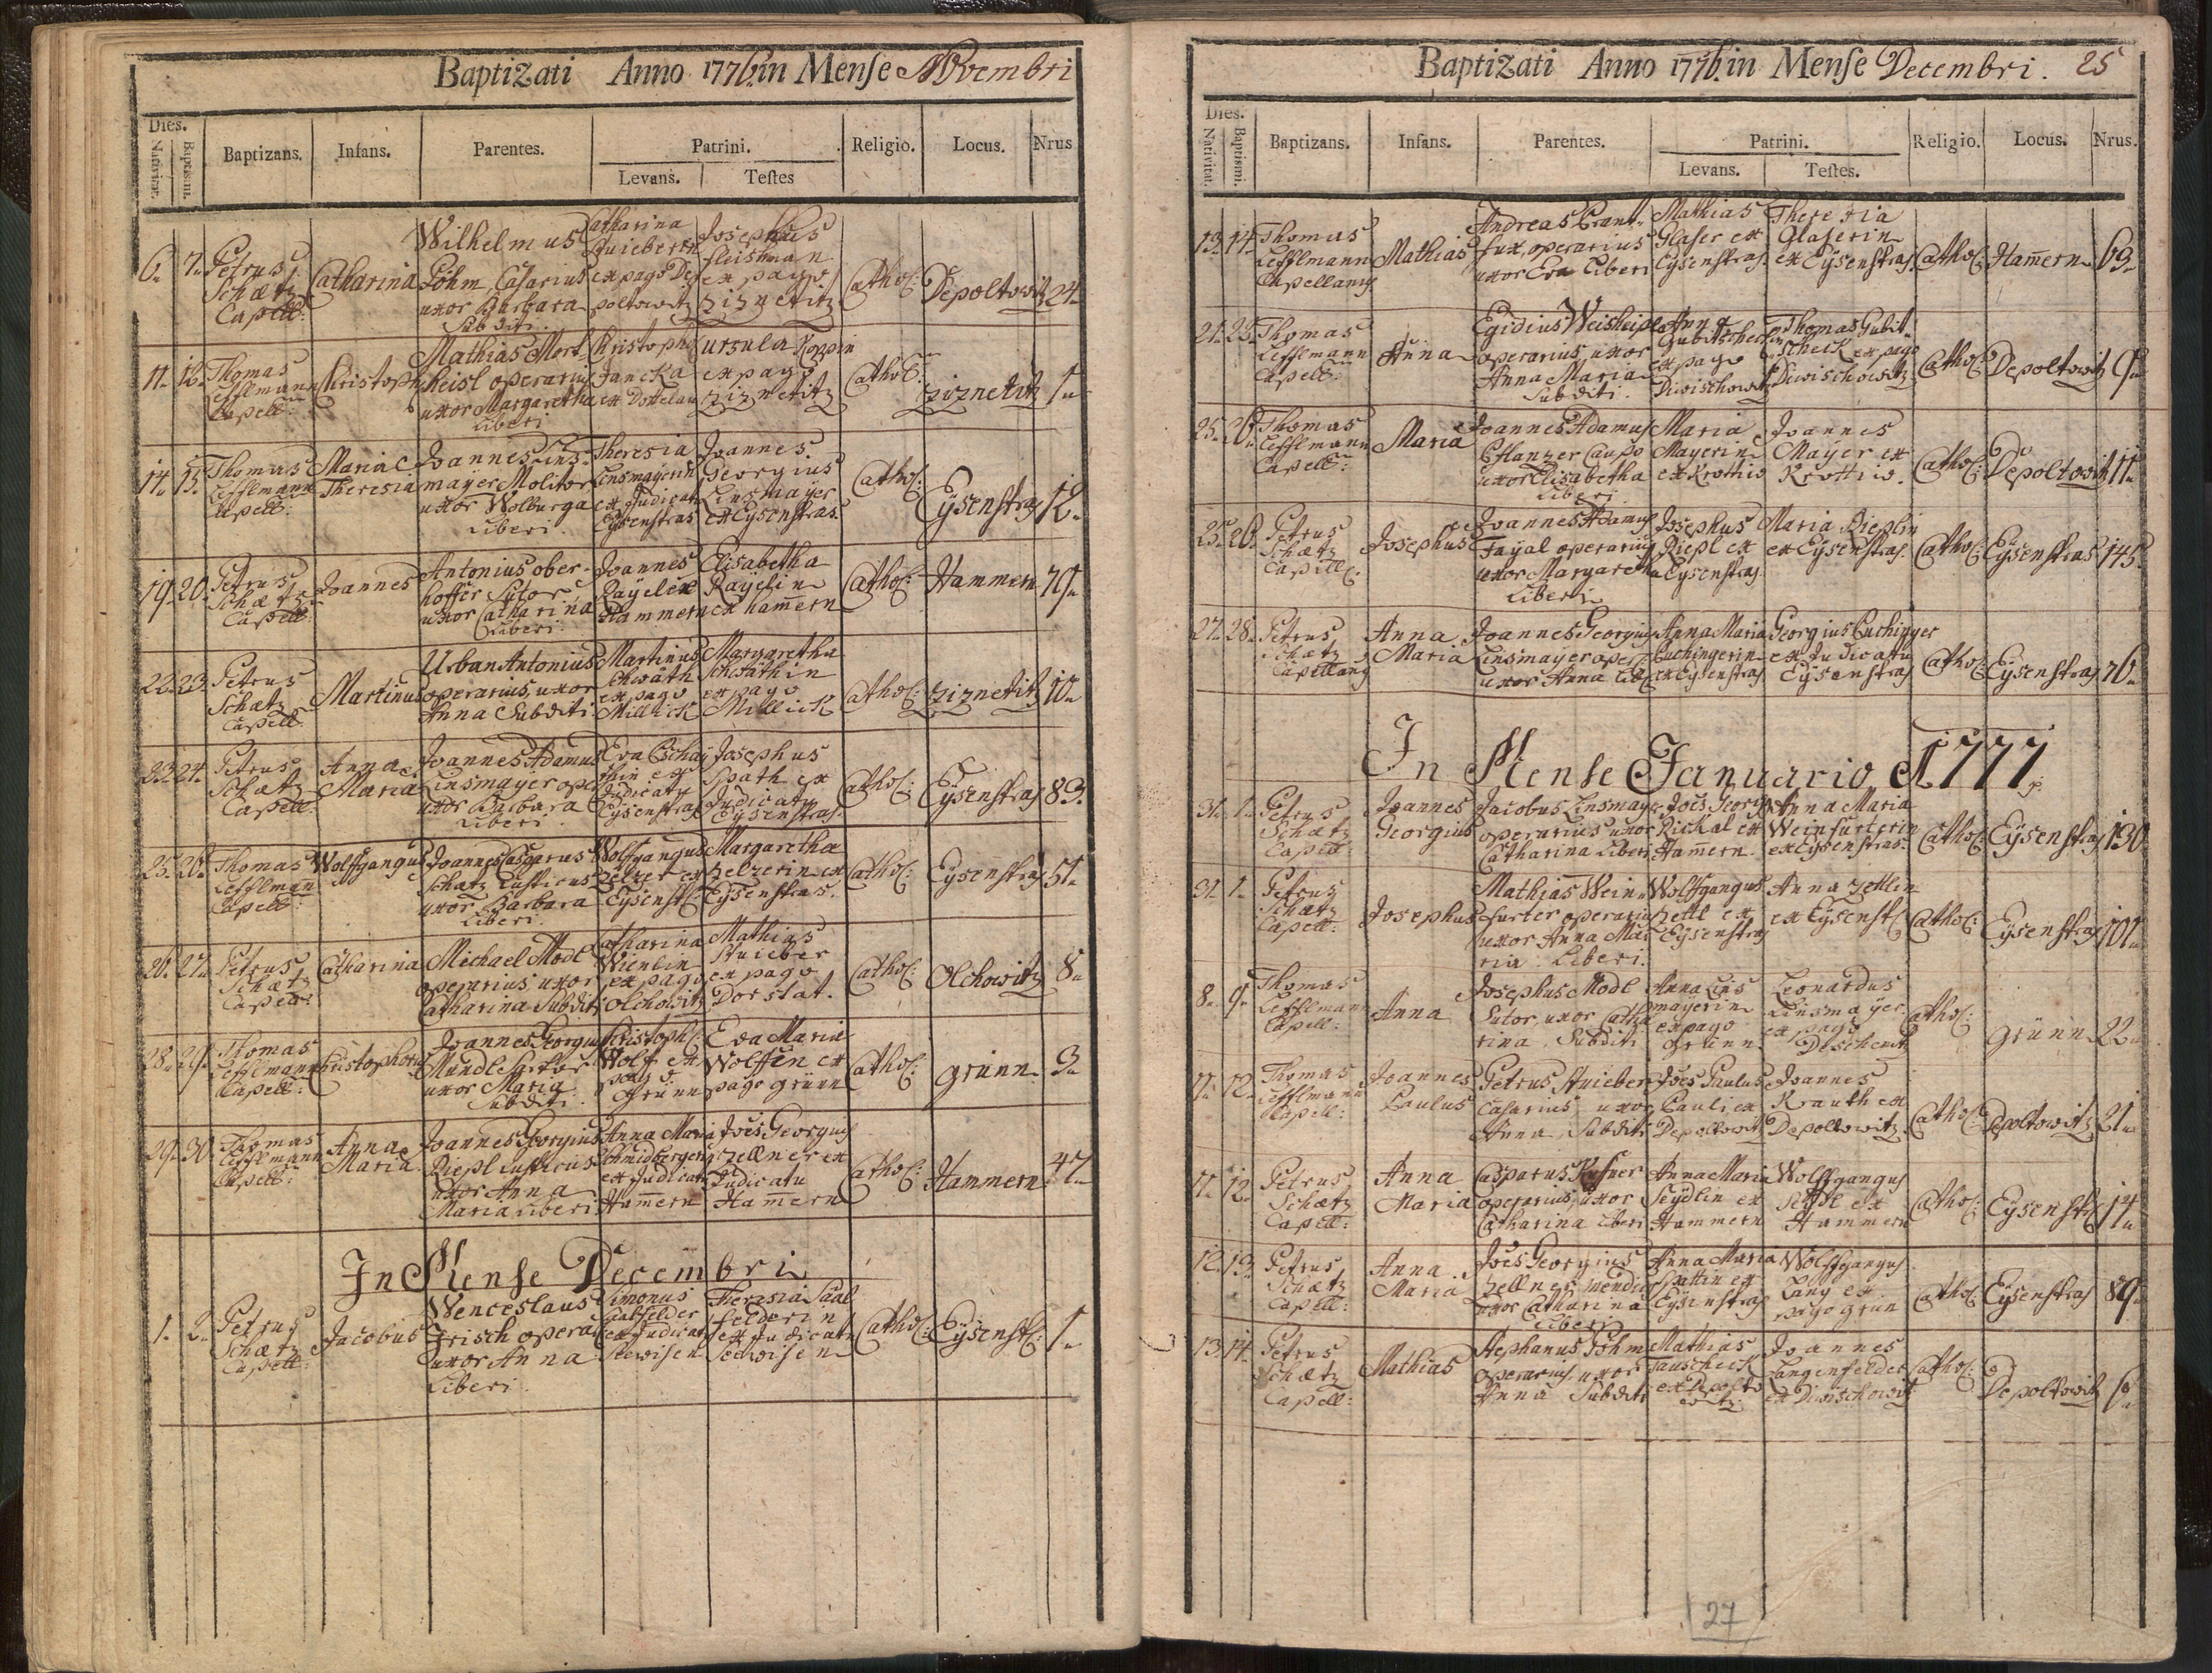 Baptizati Anno 1776 in Mense Novembri
Dies.
Nativitat.
Baptismi.
Baptizans.
Infans.
Parentes.
Patrini.
Levans.
Testes
Religio.
Locus.
Nrus
6. 7. Petrus Schætz Capell: Catharina Wilhelmus Pöhm, Casarius uxor Barbara Subditi. Catharina ex pago Depoltowitz Josephus fleishman ex pago Ziznetitz Cathol: Depoltowitz 24.
11. 12. Thomas Lefflmann Capell: Christoph Mathias uxor Margaretha Liberi operarius Christoph Jancka ex Ursula Koppin ex pago Ziznetitz Cathol: Ziznetitz 1.
14. 15. Thomas Lefflmann Capell: Maria Theresia Joannes Linsmayer Molitor uxor Wolburga Liberi. Theresia Linsmayerin ex Judicatu Eysenstras Joannes Georgius Linsmayer ex Eysenstras. Cathol: Eysenstras 12.
19. 20. Petrus Schætz Capell: Joannes Antonius oberhoffer Sutor uxor Catharina Liberi. Joannes Rayel ex Hammern Elisabetha Rayelin ex ham̄ern Cathol: Hammern 79.
22. 23. Petrus Schætz Capell: Martinus Urban Antonius operarius, uxor Anna Subditi Martinus Schwath ex pago Millick Margaretha Schwathin ex pago Millick Cathol: Ziznetitz 10.
23. 24. Petrus Schætz Capell: Anna Maria Joannes Adamus Linsmayer oper uxor Barbara Liberi. Eva ex Judicatu Eysenstras Josephus Spath ex Judicatu Eysenstras. Cathol: Eysenstras 83.
25. 26. Thomas Lefflman Capell: Wolffgangus Joannes Casparus Schatz Rusticus uxor Barbara Liberi. Wolfgangus Zelzer ex Eysenst: Margaretha Zelzerin ex Eysenstras. Cathol: Eysenstras 51.
26. 27. Petrus Schætz Capell: Catharina Michael Modl operarius, uxor Catharina Subditi Catharina Wienlin ex pago Olchowitz Mathias Stuieber ex pago Dorstat. Cathol: Olchowitz 8.
28. 29. Thomas Lefflmann Capell: Christophorus Joannes Georgius Mundl Sutor uxor Maria Subditi. Christoph: Wolf ex pago Grünn Eva Maria Wolffin ex pago grünn Cathol: grünn 3.
29. 30. Thomas Lefflmann Capell: Anna Maria Joannes Georgius Diepl rusticus uxor Anna Maria Liberi Anna Maria Schmidbergerin ex Judicatu Ham̄ern Jo͞es Georgius Zellner ex Judicatu Ham̄ern Cathol: Hammern 47.
In Mense Decembri
1. 2. Petrus Schætz Capell: Jacobus Wenceslaus Irisch opera uxor Anna Liberi. Simonus Salfelder ex Judicatu Seewisen Theresia Saalfelderin ex Judicatu Seewisen Cathol: Eysenst: 1.
Baptizati Anno 1776 in Mense Decembri. 25
Dies.
Nativitat.
Baptismi.
Baptizans.
Infans.
Parentes.
Patrini.
Levans.
Testes.
Religio.
Locus.
Nrus.
13. 14. Thomas Lefflmann Capellanus Mathias Andreas operarius uxor Eva Liberi Mathias Glaser ex Eysenstras. Theresia Glaserin ex Eysenstras. Cathol: Ham̄ern 69.
21. 23. Thomas Lefflmann Capell: Anna Egidius Weisheipl operarius, uxor Anna Maria Subditi. Anna ex pago Diwischowitz Thomas Gubitscheck ex pago Diwischowitz Cathol: Depoltowitz 9.
25. 26. Thomas Lefflmann Capell: Maria Joannes Adamus Pflanzer Caupo uxor Elisabetha Liberi Maria Mayerin ex Krottiw Joannes Mayer ex Krottiw. Cathol: Depoltowitz 11.
25. 26. Petrus Schætz Capell: Josephus Joannes Adamus Fayal operarius uxor Margaretha Liberi Josephus Diepl ex Eysenstras Maria Dieplin ex Eysenstras. Cathol: Eysenstras 145.
27. 28. Petrus Schætz Capellanus Anna Maria Joannes Georgius Linsmayer oper: uxor Anna Lib: Anna Maria Puchingerin ex Eysenstras Georgius Puchinger ex Judicatu Eysenstras Cathol: Eysenstras 76.
In Mense Januario A 1777.
31. 1. Petrus Schætz Capell: Joannes Georgius Jacobus Linsmayer operarius uxor Catharina Liberi Jo͞es Georg Rickal ex Ham̄ern. Anna Maria Weinfurterin ex Eysenstras. Cathol: Eysenstras 130
31. 1. Petrus Schætz Capell: Josephus Mathias Weinfurter operarius uxor Anna Maria Liberi. Wolffgangus Zettl ex Eysenstras Anna Zettlin ex Eysenst: Cathol: Eysenstras 101.
8. 9. Thomas Lefflmann Capell: Anna Josephus Modl Sutor, uxor Catharina, Subditi Anna Linsmayerin ex pago Grünn Leonardus Linsmayer ex pago Deschenitz Cathol: Grünn 22.
11. 12. Thomas Lefflmann Capell: Joannes Paulus Petrus Stuieber Casarius, uxor Anna, Subditi Jo͞es Paulus Pauli ex Depoltowitz Joannes Krauth ex Depoltowitz Cathol: Depoltowitz 21.
11. 12. Petrus Schætz Capell: Anna Maria Casparus operarius, uxor Catharina Liberi Anna Maria Seydlin ex Hammern Wolffgangus Seydl ex Hammern Cathol: Eysenst: 14.
12. 13. Petrus Schætz Capell: Anna Maria Jo͞es Georgius Zellner mendic: uxor Catharina Liberi Anna Maria Spattin ex Eysenstras Wolffgangus Lang ex pago grün Cathol: Eysenstras 89.
13. 14. Petrus Schætz Capell: Mathias Stephanus Pöhm operarius, uxor Anna Subditi Mathias Tauscheck ex Depoltowitz. Joannes Langenfelder ex Diwischowitz Cathol: Depoltowitz 6.
27